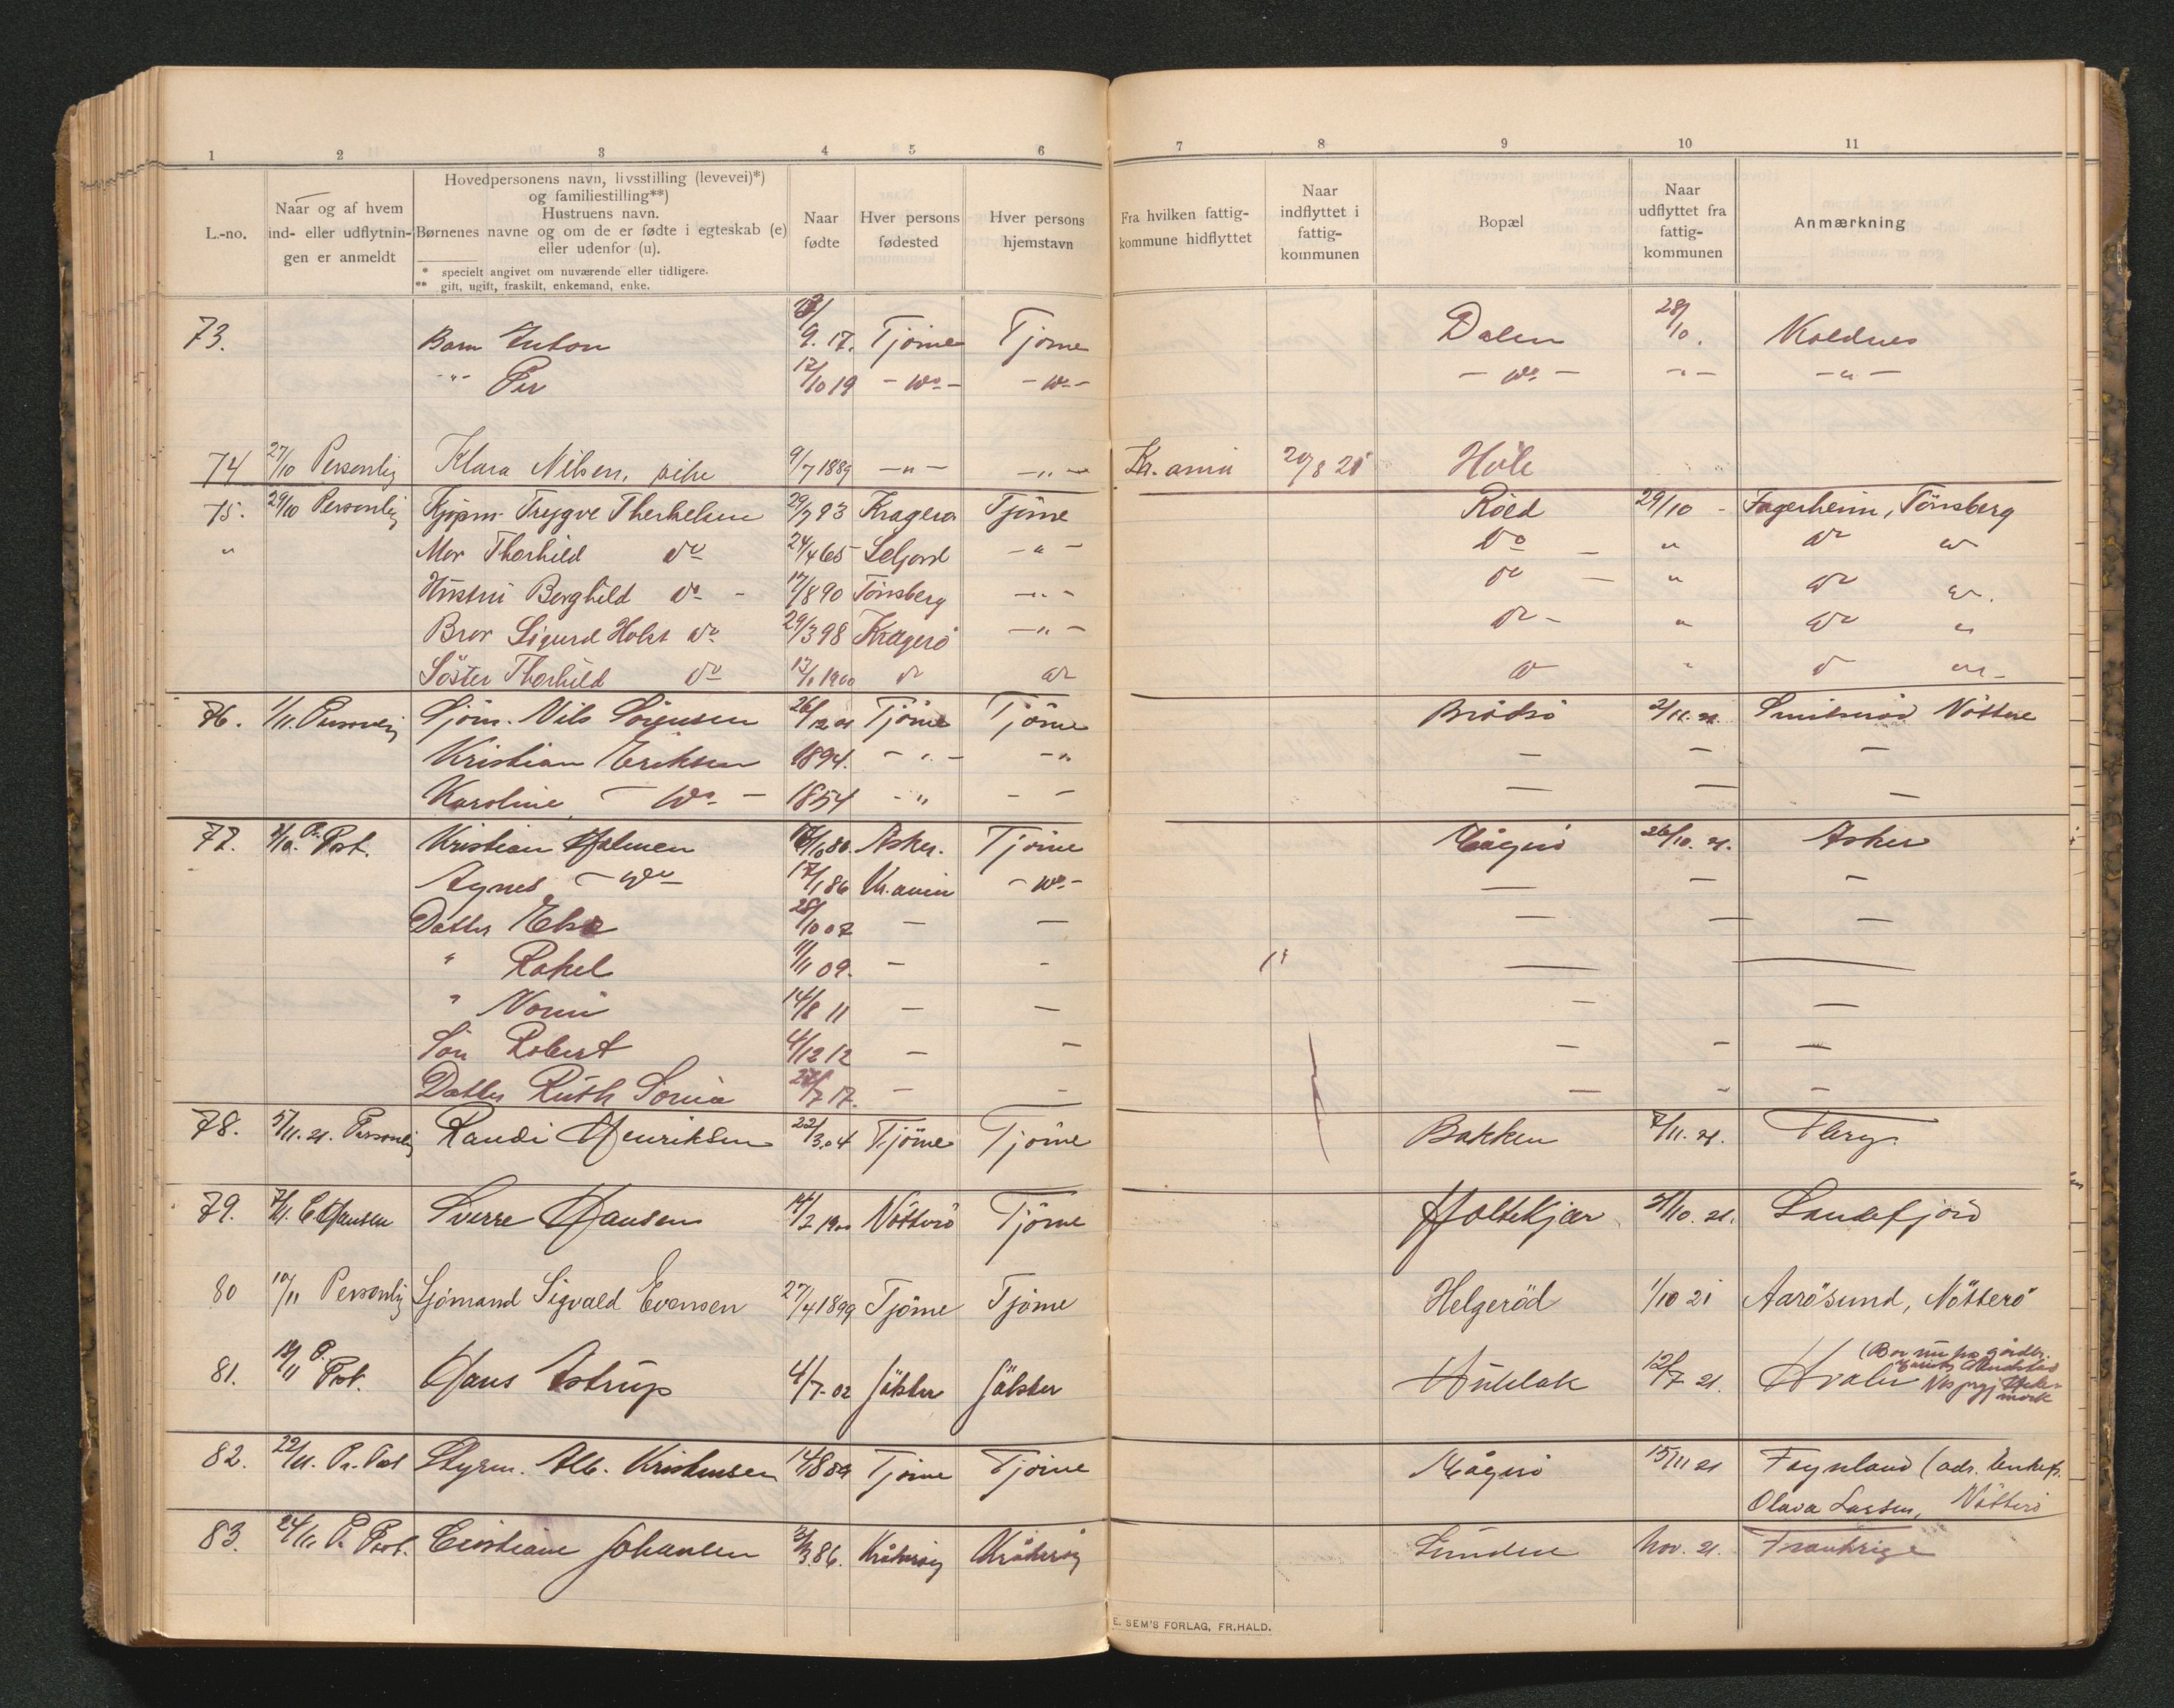 1 2 3 4 5 6 7 8 9 10 11
L.-no.
Naar og af hvem ind- eller udflytnin-gen er anmeldt
Hovedpersonens navn, livsstilling (levevei)*)
og familiestilling**)
Hustruens navn.
Børnenes navne og om de er fødte i egteskab (e)
eller udenfor (u).
* specielt angivet om nuværende eller tidligere.
** gift, ugift, fraskilt, enkemand, enke.
Naar fødte
Hver persons fødested
Hver persons hjemstavn
Fra hvilken fattig-kommune hidflyttet
Naar indflyttet i fattig-kommunen
Bopæl
Naar udflyttet fra fattig-kommunen
Anmærkning
73. Barn Anton 9. 17. Tjöme Tjöme Dalen 28/10. Kaldnes
-"- Per 12/10 19 - do - - do - - do - -"- -"-
74 27/10 Personlig Klara Nilsen, 9/7 1889 -"- -"- Kr.ania 20/8 21 Hole
75. 29/10 Personlig Kjöpm. Trygve Therkelsen 29/7 93 Kragerø Tjöme Röed 29/10 - Fagerheim, Tönsberg
" Mor Thorhild do 24/4 65 Seljord -"- do - " do do
Hustru Borghild do - 17/8 90 Tönsberg -"- do - " do do
Bror Sigurd Holst do 29/3 98 Kragerö -"- do - " do "
Söster Thorhild do 1900 do do do " do do
76. 1/11. Personlig Sjöm. Nils Sörensen 26/12 01 Tjöme Tjöme Brödsö 2/11. 21. Smidsröd Nöttere
Kristian Eriksen 1894. -"- -" - - -
Karoline - do - 1854 -" - - - - -
77. P. Post. Kristian Holmen Asker. Tjöme Mågerö 26/10. 21. Asker
Agnes - do 17/1 86 Kr.ania - do - - - -
Datter Elsa 28/10 07 - - - - -
" Rakel 11/11 09. - - - -
" Noomi 14/8 11 - - - -
Sön Robert 4/12 12 - - - - -
Datter Ruth Sonia 7 17. - - - - -
78. 5/11. 21. Personlig Randi Henriksen 22/3.04 Tjöme Tjöme Bakken 7/11. 21. Tbrg.
79. 7/11. C. Hansen Sverre Hansen 14/2 1900 Nötterö Tjöme Holtekjær 31/10. 21. Sandefjord
80 10/11 Personlig Sjömand Sigvald Evensen 27/4 1899 Tjöme Tjöme Helgeröd 1/10 21 Aarösund, Nötterö
81. 18/11 P. Post. Hans Astrup 4/7-02 Jölster Jölster Hulebak 12/7 21. Hvaler (Bor nu på gården
82. 22/11. Pr. Post Styrm. Alb. Kristensen 14/8 89 Tjöme Tjöme Mågerö 15/11 21 Föynland (adr. Enkefr.
Olava Larsen, Nötterö
83. 24/11 P. Post. Cristiane Johansen 3/3 86. Kråkeröy Kråkeröy Lunden Nov. 21. Frankrige
E. SEM'S FORLAG, FR.HALD.